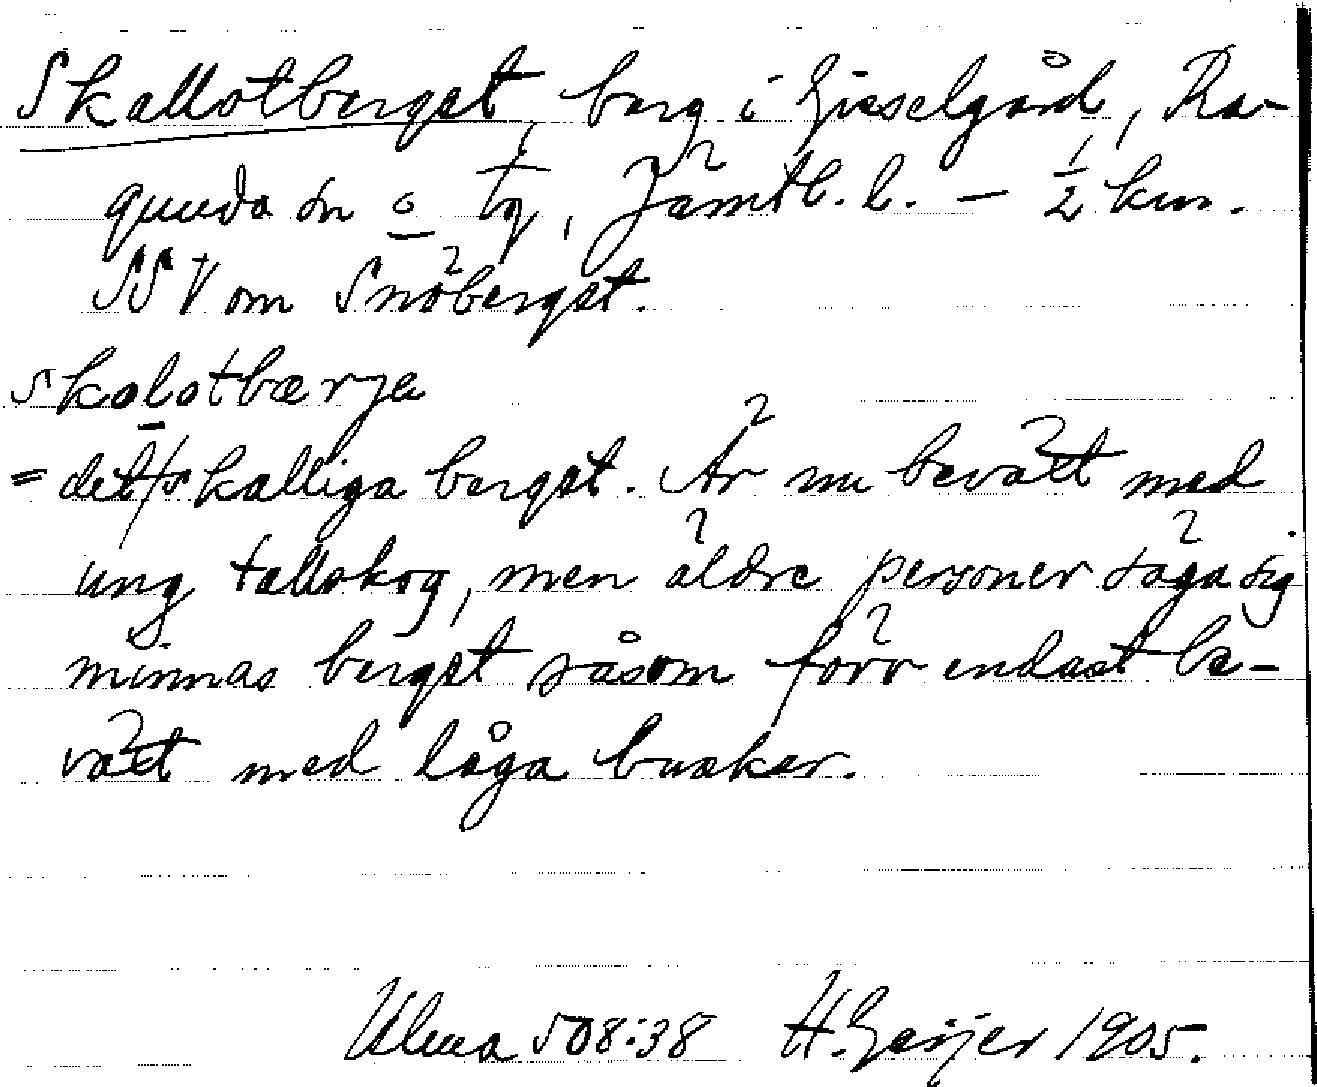 Skallotberget, berg i Gisselgård, Ra-
gunda sn o tg, Jämtl. l. – ½ km.
SSV om Snöberget.
skalotbærja
= det skalliga berget. Är nu bevätt med
ung tallskog, men äldre personer säga sig
minnas berget såsom förr endast be-
vätt med låga buskar.
Ulma 508:38 H. Geijer 1905.